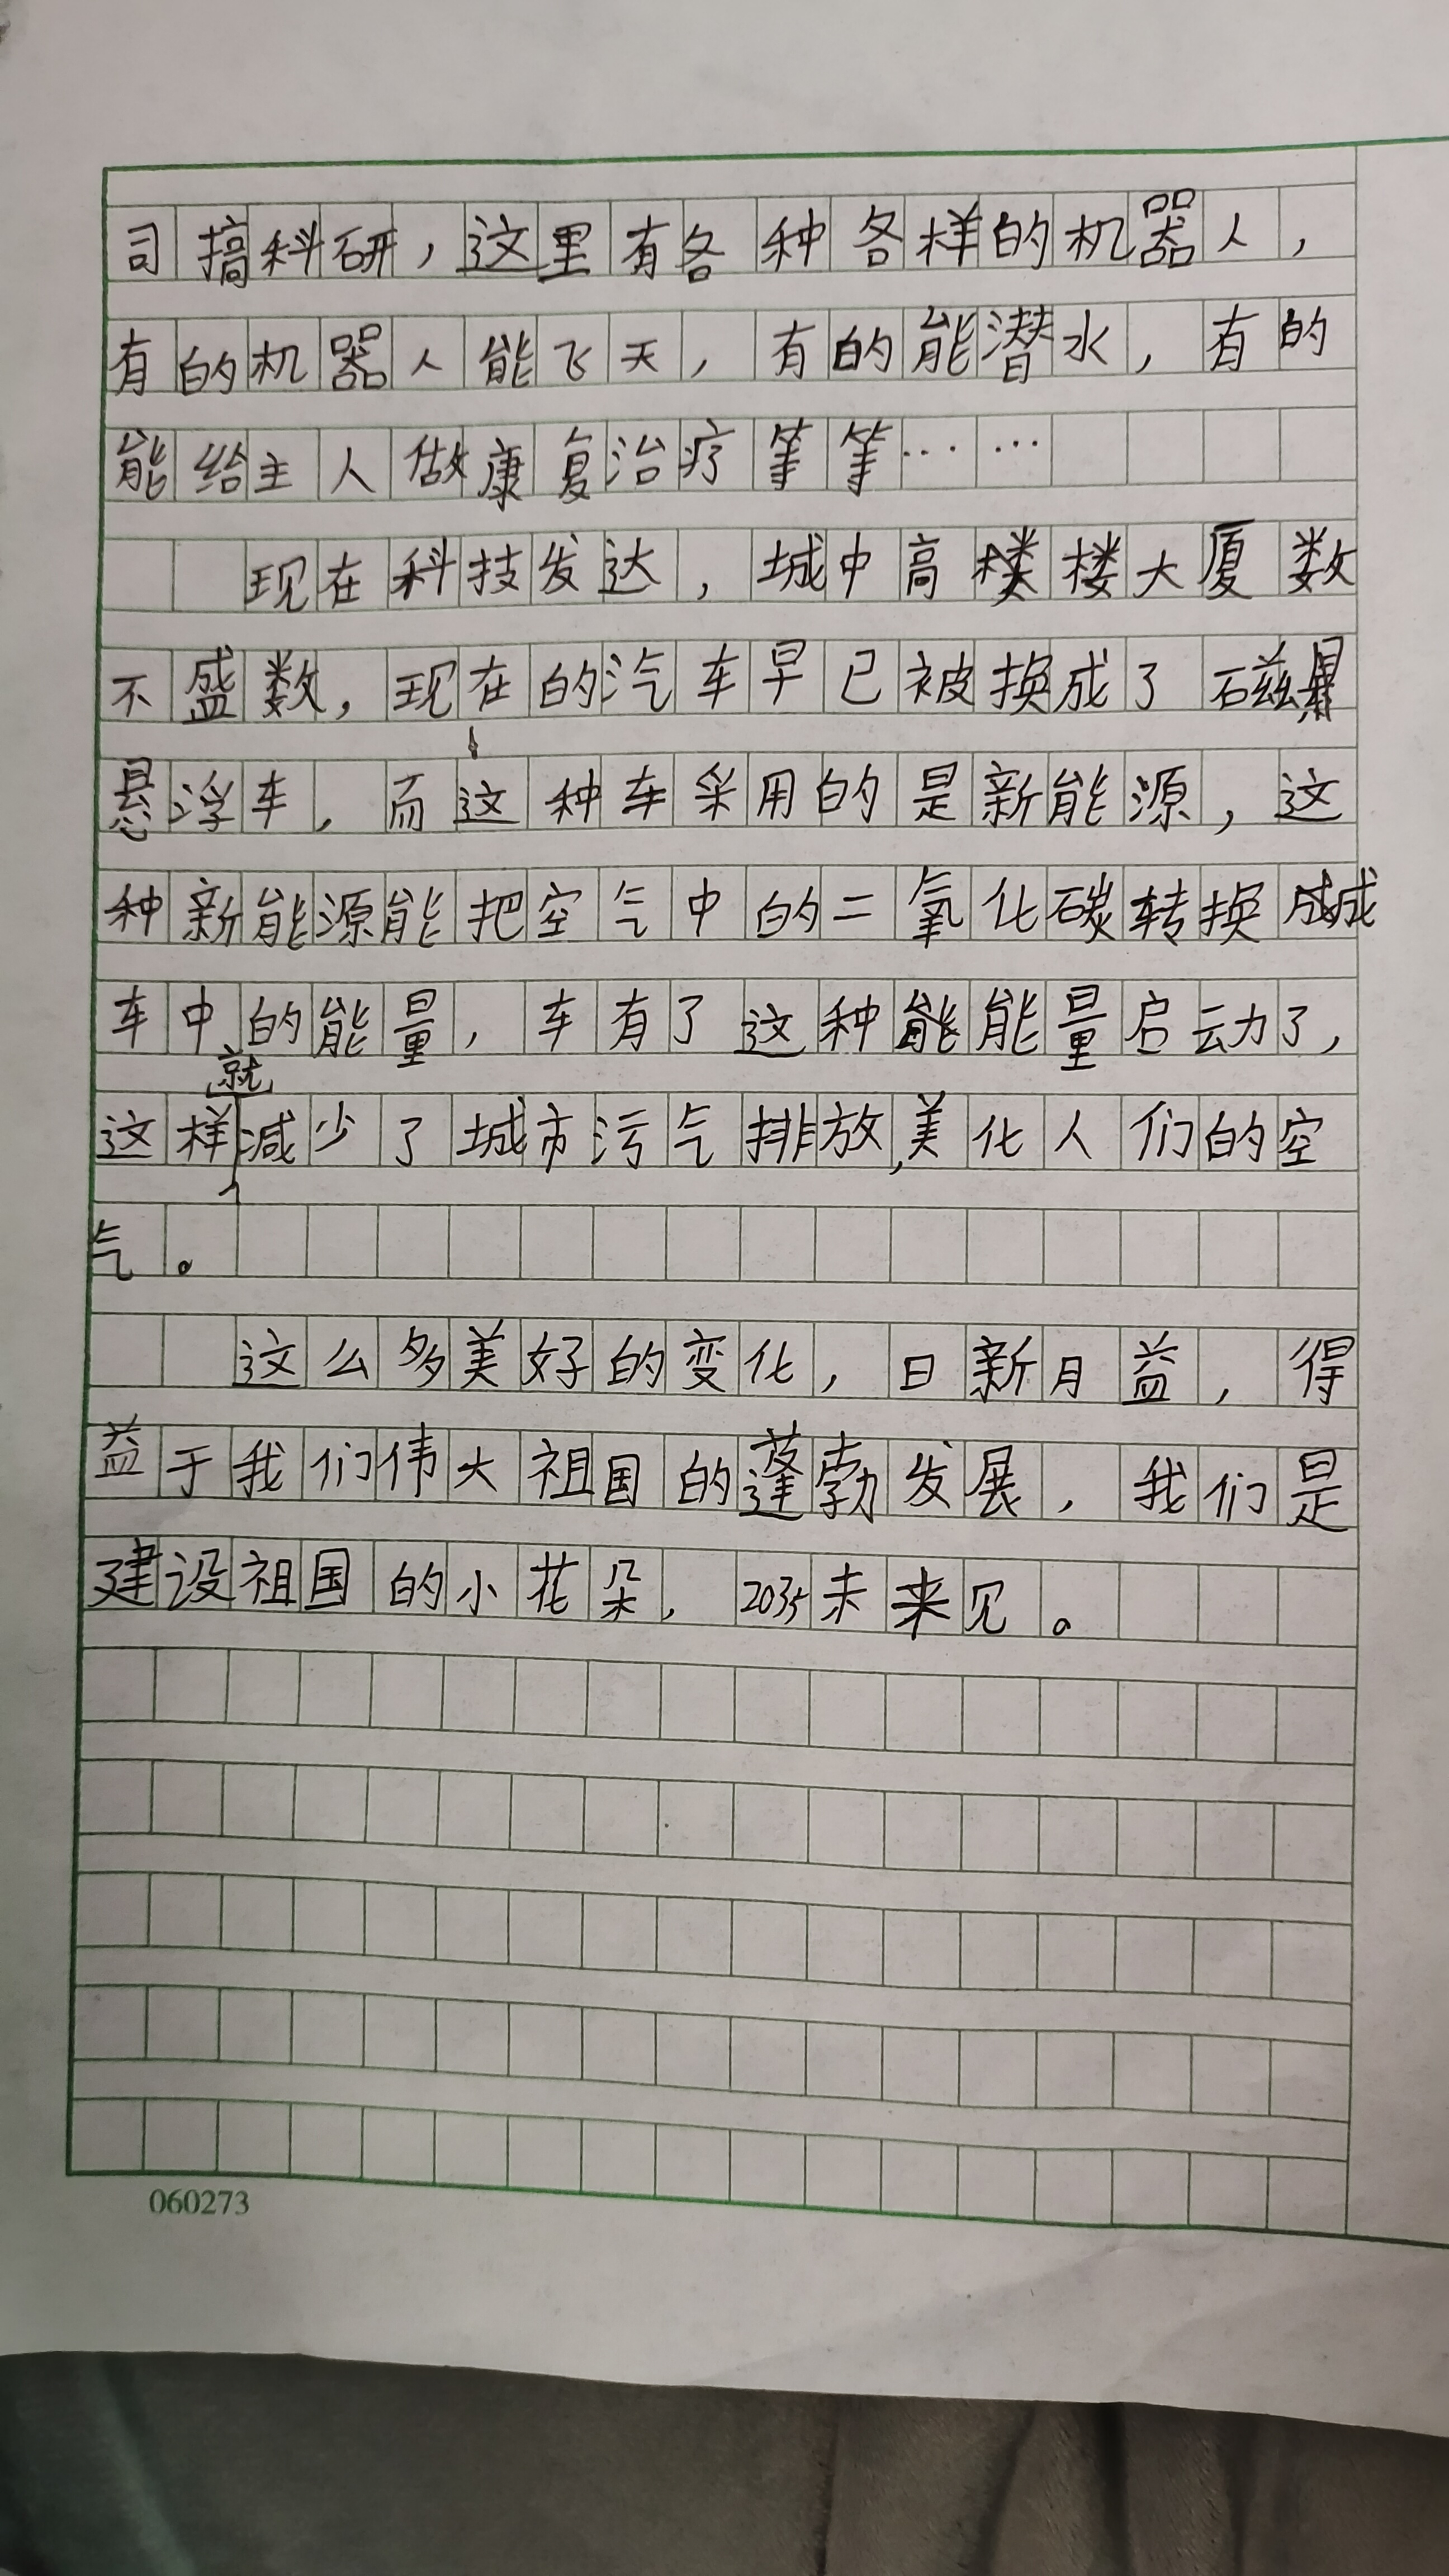 司搞科研，这里有各种各样的机器人，
有的机器人能飞天，有的能潜水，有的
能给主人做康复治疗等等……
现在科技发达，城中高楼大厦数
不盛数，现在的汽车早已被换成了磁
悬浮车，而这种车采用的是新能源，这
种新能源能把空气中的二氧化碳转换成
车中的能量，车有了这种能量启动了，
这样就减少了城市污气排放，美化人们的空
气。
这么多美好的变化，日新月益，得
益于我们伟大祖国的蓬勃发展，我们是
建设祖国的小花朵，2035未来见。
060273